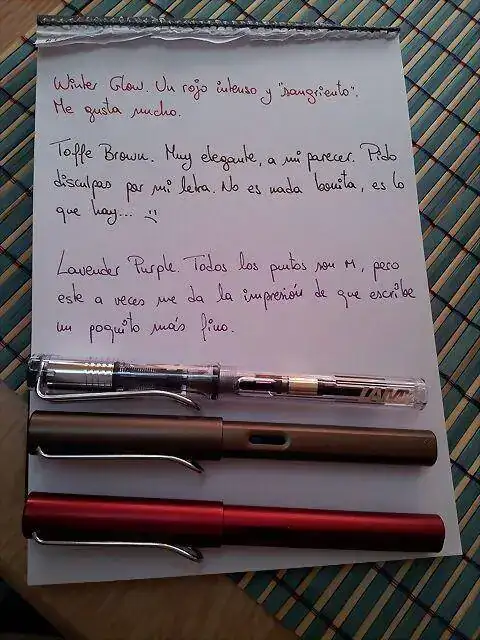 Winter Glow. Un rojo intenso y "sangriento".
Me gusta mucho.
Toffe Brown. Muy elegante, a mi parecer. Pido
disculpas por mi letra. No es nada bonita, es lo
que hay... :(
Lavender Purple. Todos los puntos son M, pero
este a veces me da la impresión de que escribe
un poquito más fino.
LAMY